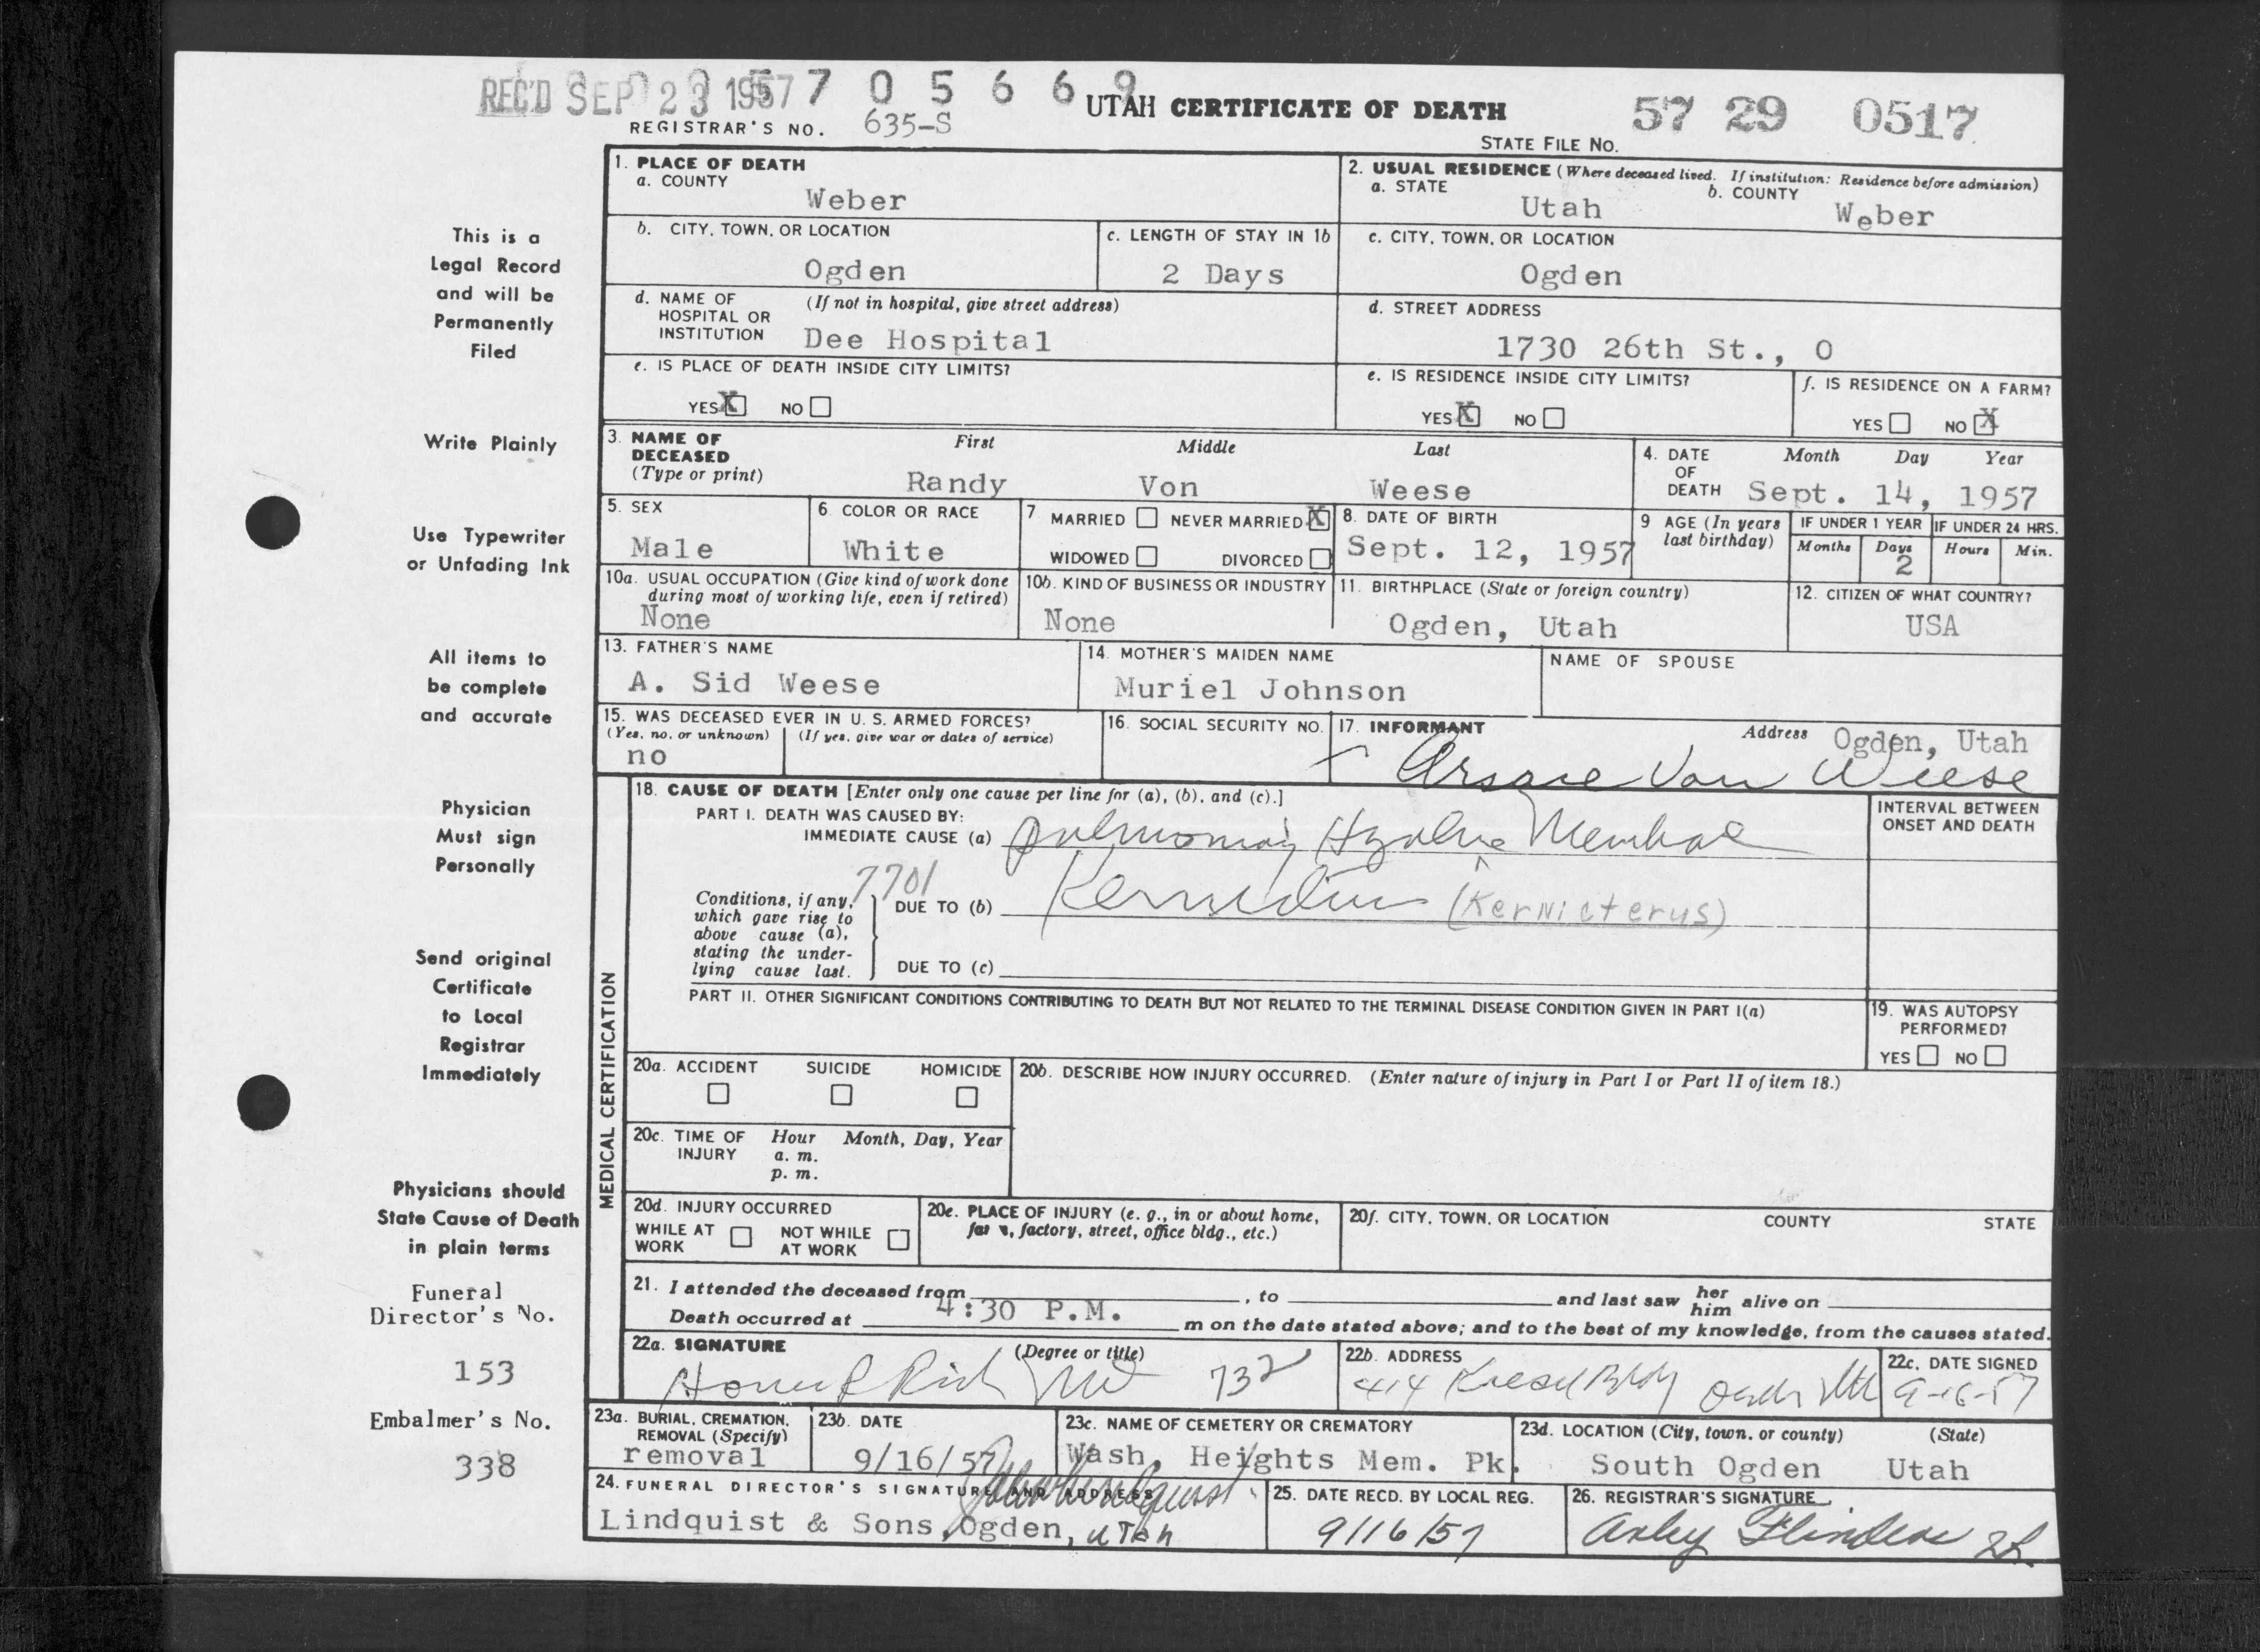 REC'D SEP 23 1957 7 0 5 6 6 9
UTAH CERTIFICATE OF DEATH
57 29 0517
REGISTRAR'S NO. 635-S
STATE FILE NO.
This is a
Legal Record
and will be
Permanently
Filed
Write Plainly
Use Typewriter
or Unfading Ink
All items to
be complete
and accurate
Physician
Must sign
Personally
Send original
Certificate
to Local
Registrar
Immediately
Physicians should
State Cause of Death
in plain terms
Funeral
Director's No.
153
Embalmer's No.
338
1. PLACE OF DEATH
a. COUNTY
Weber
2. USUAL RESIDENCE (Where deceased lived. If institution: Residence before admission)
a. STATE
Utah
b. COUNTY
Weber
b. CITY, TOWN, OR LOCATION
Ogden
c. LENGTH OF STAY IN 1b
2 Days
c. CITY, TOWN, OR LOCATION
Ogden
d. NAME OF HOSPITAL OR INSTITUTION
(If not in hospital, give street address)
Dee Hospital
d. STREET ADDRESS
1730 26th St., O
e. IS PLACE OF DEATH INSIDE CITY LIMITS?
YES X NO
e. IS RESIDENCE INSIDE CITY LIMITS?
YES X NO
f. IS RESIDENCE ON A FARM?
YES NO X
3. NAME OF DECEASED
(Type or print)
First Middle Last
Randy Von Weese
4. DATE OF DEATH
Month Day Year
Sept. 14, 1957
5. SEX
Male
6 COLOR OR RACE
White
7 MARRIED NEVER MARRIED X
WIDOWED DIVORCED
8. DATE OF BIRTH
Sept. 12, 1957
9 AGE (In years last birthday)
IF UNDER 1 YEAR
Months Days
2
IF UNDER 24 HRS.
Hours Min.
10a. USUAL OCCUPATION (Give kind of work done
during most of working life, even if retired)
None
10b. KIND OF BUSINESS OR INDUSTRY
None
11. BIRTHPLACE (State or foreign country)
Ogden, Utah
12. CITIZEN OF WHAT COUNTRY?
USA
13. FATHER'S NAME
A. Sid Weese
14. MOTHER'S MAIDEN NAME
Muriel Johnson
NAME OF SPOUSE
15. WAS DECEASED EVER IN U. S. ARMED FORCES?
(Yes, no, or unknown) (If yes, give war or dates of service)
no
16. SOCIAL SECURITY NO.
17. INFORMANT
Address Ogden, Utah
Van Weese
MEDICAL CERTIFICATION
18. CAUSE OF DEATH [Enter only one cause per line for (a), (b), and (c).]
PART I. DEATH WAS CAUSED BY:
IMMEDIATE CAUSE (a) pulmonary Hyaline Membrane
INTERVAL BETWEEN
ONSET AND DEATH
7701
Conditions, if any,
which gave rise to
above cause (a),
stating the under-
lying cause last.
DUE TO (b) Kernicterus (Kernicterus)
DUE TO (c)
PART II. OTHER SIGNIFICANT CONDITIONS CONTRIBUTING TO DEATH BUT NOT RELATED TO THE TERMINAL DISEASE CONDITION GIVEN IN PART I(a)
19. WAS AUTOPSY
PERFORMED?
YES NO
20a. ACCIDENT SUICIDE HOMICIDE
20b. DESCRIBE HOW INJURY OCCURRED. (Enter nature of injury in Part I or Part II of item 18.)
20c. TIME OF INJURY
Hour Month, Day, Year
a. m.
p. m.
20d. INJURY OCCURRED
WHILE AT WORK NOT WHILE AT WORK
20e. PLACE OF INJURY (e. g., in or about home,
farm, factory, street, office bldg., etc.)
20f. CITY, TOWN, OR LOCATION COUNTY STATE
21. I attended the deceased from , to and last saw her him alive on
Death occurred at 4:30 P.M. m on the date stated above; and to the best of my knowledge, from the causes stated.
22a. SIGNATURE (Degree or title)
Homer R Rich MD 732
22b. ADDRESS
414 Kiesel Bldg Ogden Utah
22c. DATE SIGNED
9-16-57
23a. BURIAL, CREMATION,
REMOVAL (Specify)
removal
23b. DATE
9/16/57
23c. NAME OF CEMETERY OR CREMATORY
Wash. Heights Mem. Pk.
23d. LOCATION (City, town, or county) (State)
South Ogden Utah
24. FUNERAL DIRECTOR'S SIGNATURE AND ADDRESS
John Lindquist
Lindquist & Sons, Ogden, Utah
25. DATE RECD. BY LOCAL REG.
9/16/57
26. REGISTRAR'S SIGNATURE
Flinders